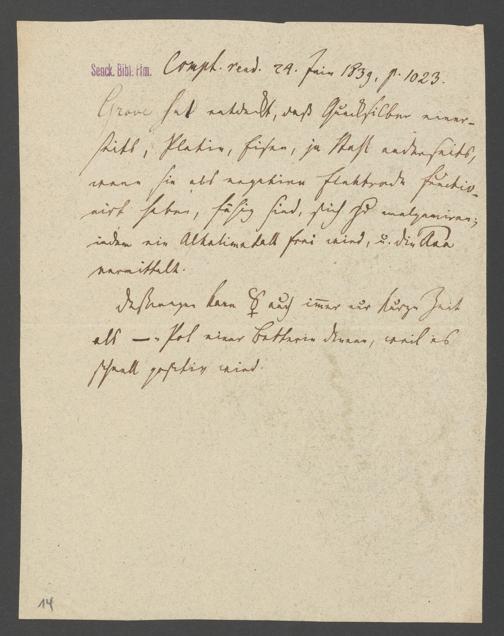 Senck. Bibl. Ffm.
Compt. rend. 24. Juin 1839, p. 1023.
Grove hat entdeckt, daß Quecksilber einer-
seits, Platin, Eisen, ja Stahl anderseits,
wenn sie als negative Elektrode functio-
nirt haben, fähig sind, sich zu amalgamiren;
indem ein Alkalimetall frei wird, u. die
vermittelt.
Deßwegen kann ☿ auch immer nur kurze Zeit
als — Pol einer Batterie dienen, weil es
schnell positiv wird.
14